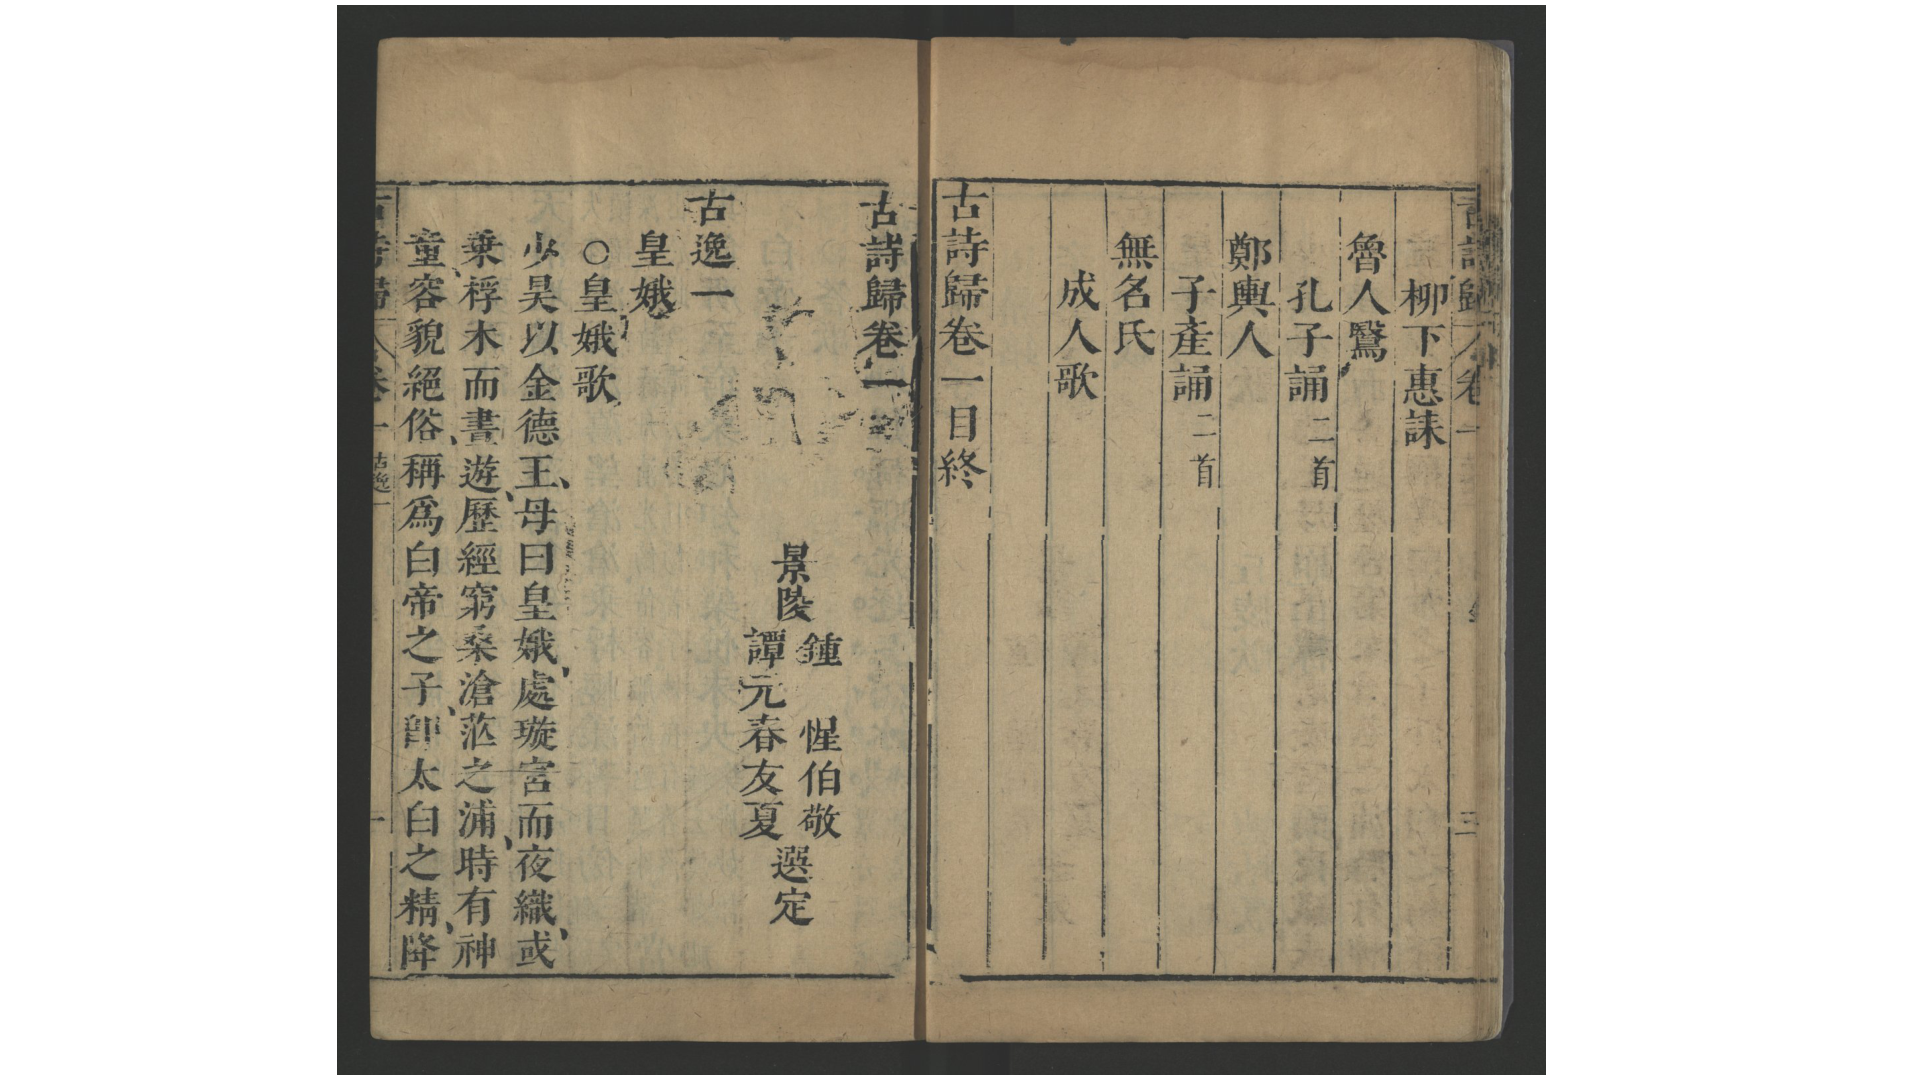 古詩歸 卷一 三
柳下惠誄
魯人鷖
孔子誦二首
鄭輿人
子產誦二首
無名氏
成人歌
古詩歸卷一目終
古詩歸卷一
景陵
鍾惺伯敬
譚元春友夏
選定
古逸一
皇娥
○皇娥歌
少昊以金德王母曰皇娥處璇宮而夜織或
乗桴木而晝遊歷經窮桑滄茫之浦時有神
童容貌絕俗稱爲白帝之子卽太白之精降
古詩歸 卷一 古逸一 一